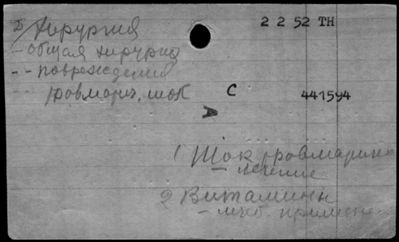 Хирургия
2 2 52 TH
- общая хирургия
-- повреждения
-- травматич. шок
C
441594
A
1 Шок травматич.
- лечение
2 Витамины
- леч. применен.